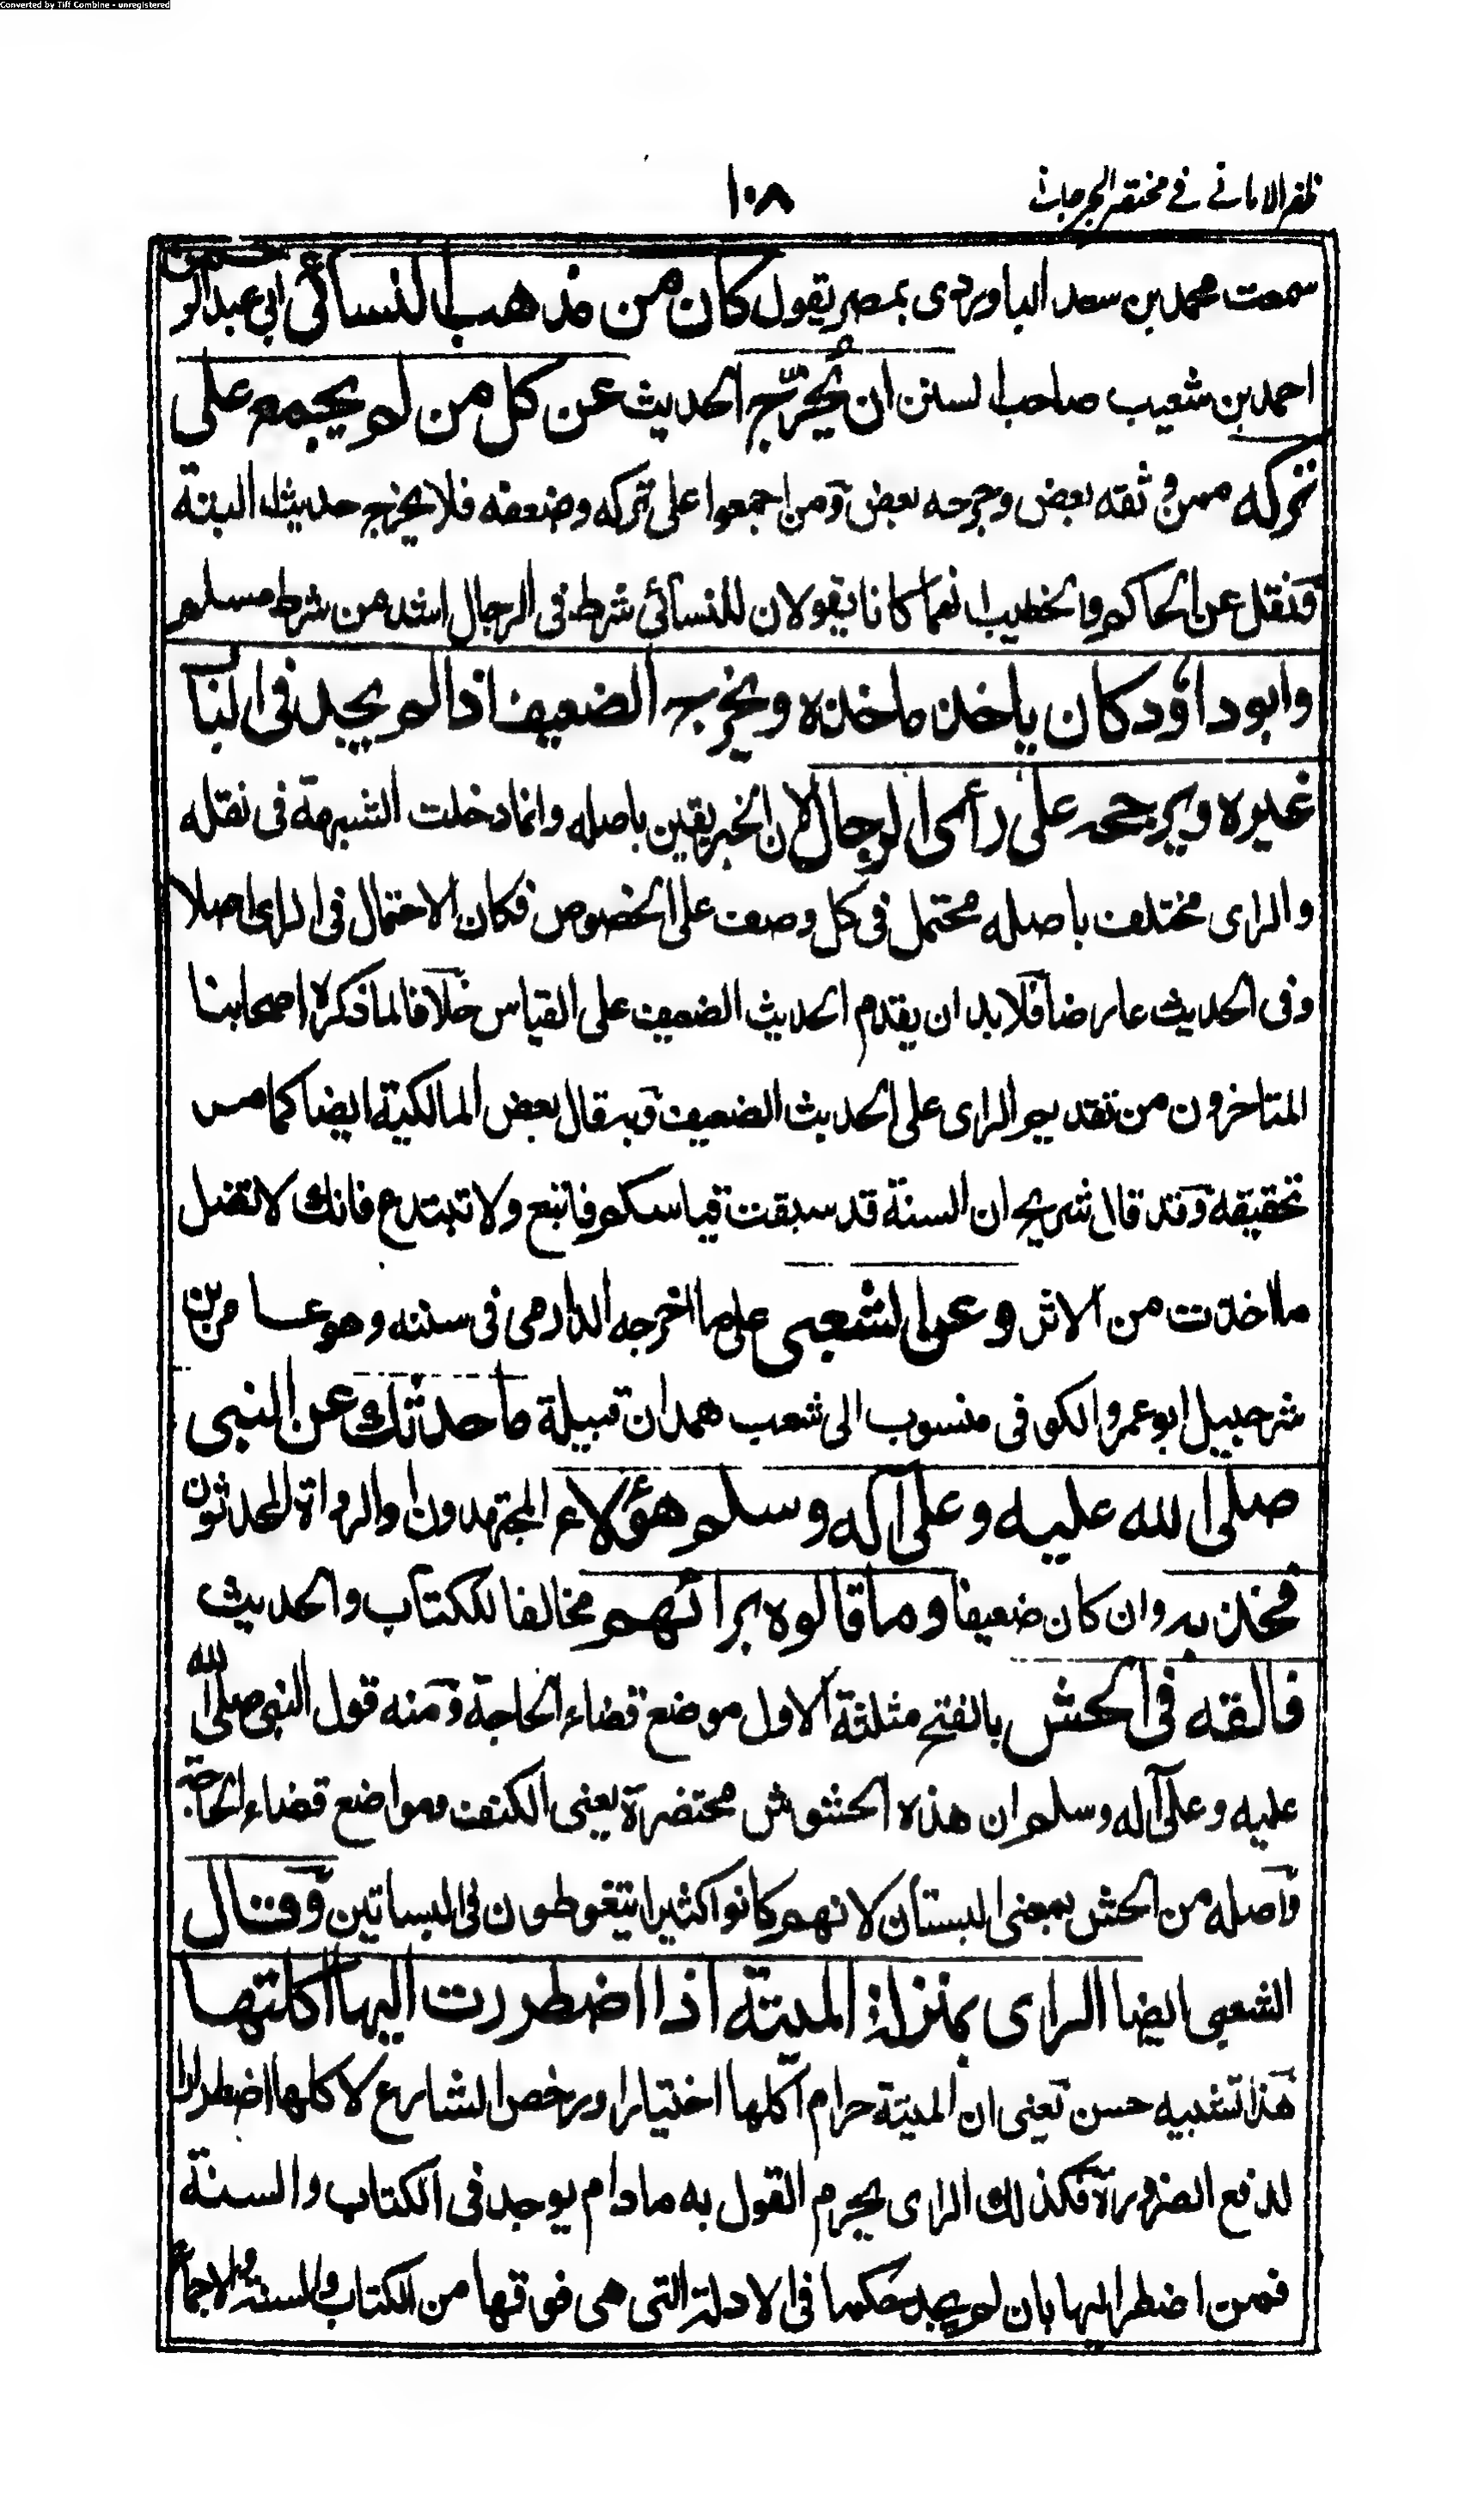 Converted by Tiff Combine - unregistered
ظفر الامانى فى مختصر الجرجانى
١٠٨
سمعت محمد بن سعد الباوردى بمصر يقول كان من مذهب النسائى ابى عبد الرحمن
احمد بن شعيب صاحب السنن ان يُخرّج الحديث عن كل من لم يجمع على
تركه ممن وثقه بعض وجرحه بعض ومن اجمعوا على تركه وضعفه فلا يخرج حديثه البتة
ونقل عن الحاكم والخطيب انهما كانا يقولان للنسائى شرط فى الرجال اشد من شرط مسلم
وابو داؤد كان ياخذ ماخذه ويخرج الضعيف اذا لم يجد فى الباب
غيره ويرجحه على رأى الرجال لان الخبر يقين باصله وانما دخلت الشبهة فى نقله
والراى مختلف باصله محتمل فى كل وصف على الخصوص فكان الاحتمال فى الراى اصلا
وفى الحديث عارضا فلا بد ان يقدم الحديث الضعيف على القياس خلافا لما ذكره اصحابنا
المتاخرون من تقديم الراى على الحديث الضعيف وبه قال بعض المالكية ايضا كما مر
تحقيقه وقد قال شريح ان السنة قد سبقت قياسكم فاتبع ولا تبتدع فانك لا تضل
ما اخذت من الاثر وعن الشعبى على ما اخرجه الدارمى فى سننه وهو عامر بن
شرحبيل ابو عمرو الكوفى منسوب الى شعب همدان قبيلة ما حدثك عن النبى
صلى الله عليه وعلى آله وسلم هؤلاء المجتهدون والرواة المحدثون
فخذ به وان كان ضعيفا وما قالوه برائهم مخالفا للكتاب والحديث
فالقه فى الحش بالفتح مثلثة الاول موضع قضاء الحاجة ومنه قول النبى صلى الله
عليه وعلى آله وسلم ان هذه الحشوش محتضرة يعنى الكنف ومواضع قضاء الحاجة
واصله من الحش بمعنى البستان لانهم كانوا كثيرا يتغوطون فى البساتين وقال
الشعبى ايضا الراى بمنزلة الميتة اذا اضطررت اليها اكلتها
هذا تشبيه حسن يعنى ان الميتة حرام اكلها اختيارا ورخص الشارع لاكلها اضطرارا
لدفع الضرورة فكذلك الراى يحرم القول به مادام يوجد فى الكتاب والسنة
فمن اضطر اليها بان لم يجد حكما فى الادلة التى هى فوقها من الكتاب والسنة والاجماع